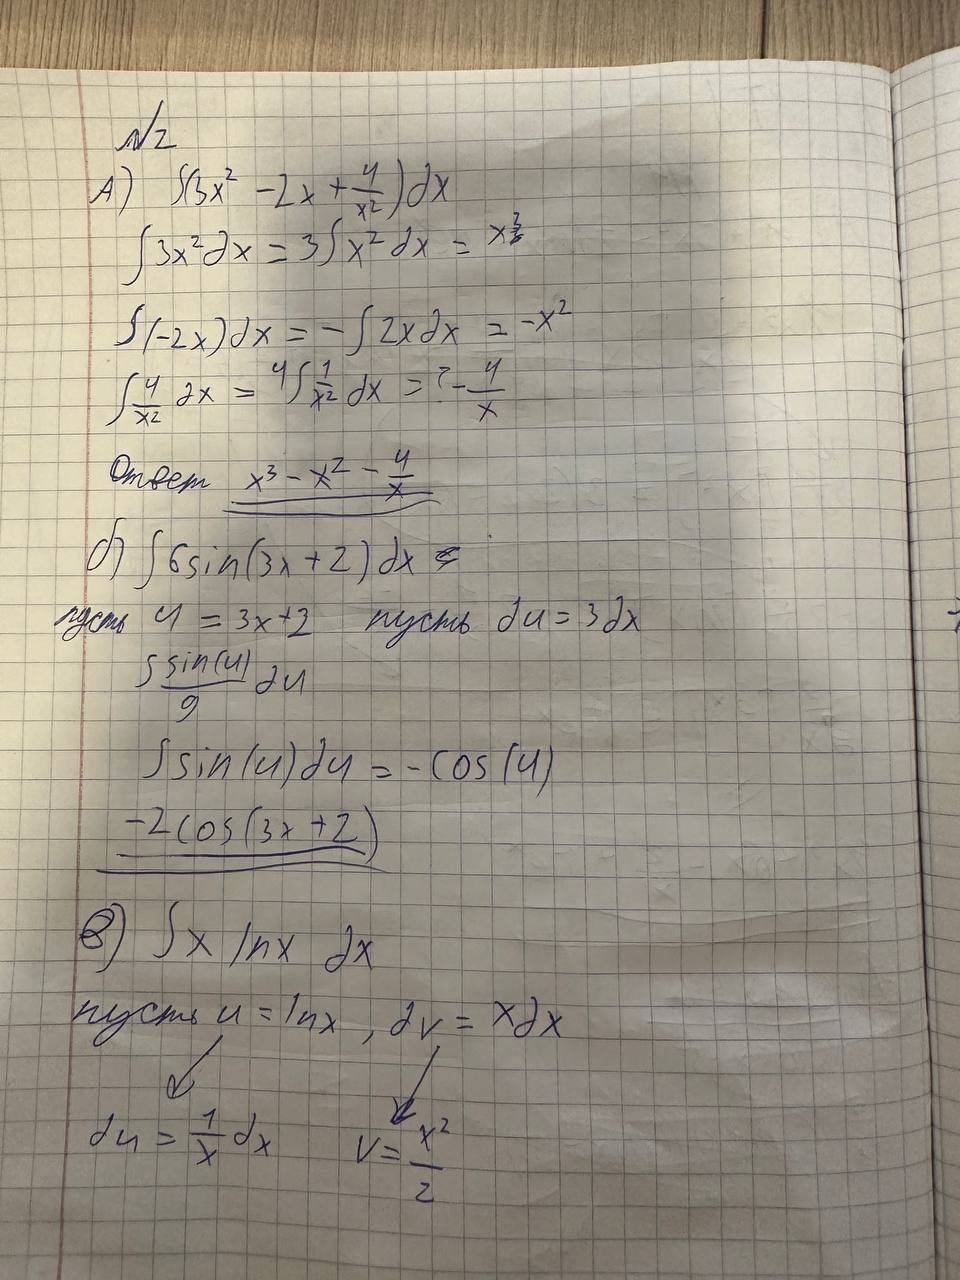 №2
А) ∫(3x² - 2x + 4/x²) dx
∫3x² dx = 3∫x² dx = x³
∫(-2x) dx = -∫2x dx = -x²
∫4/x² dx = 4∫1/x² dx = ? - 4/x
Ответ x³ - x² - 4/x
б) ∫6sin(3x+2) dx =
пусть u = 3x+2 пусть du = 3dx
∫sin(u)/9 du
∫sin(u) du = -cos(u)
-2cos(3x+2)
в) ∫x lnx dx
пусть u = lnx, dv = xdx
du = 1/x dx v = x²/2